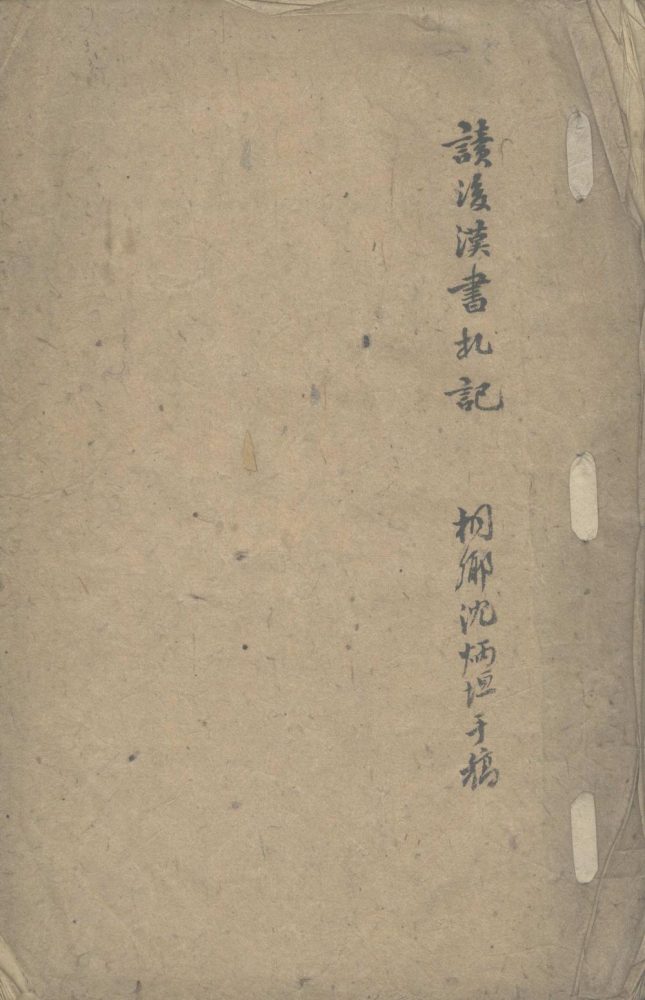 讀後漢書札記　桐鄉沈炳垣手稿